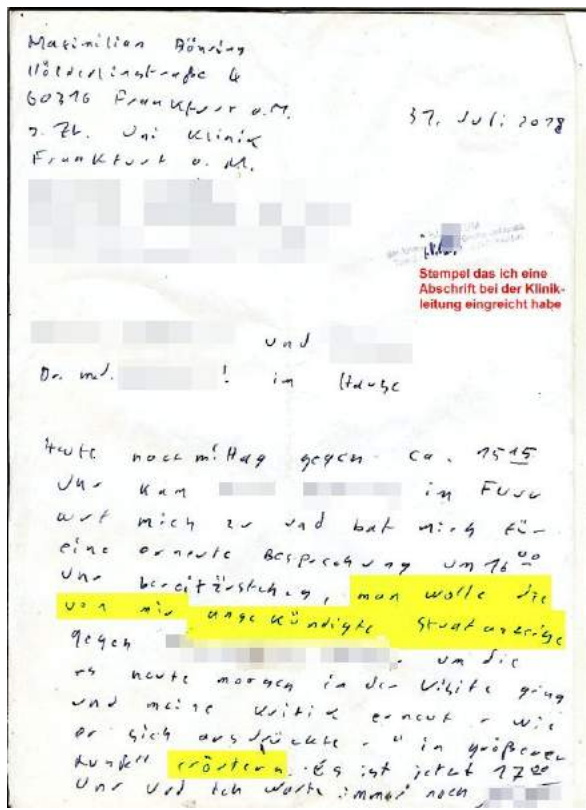 Maximilian Bönsing
Hölderlinstraße 4
60316 Frankfurt a.M.
z. Zt. Uni Klinik
Frankfurt a. M.
31. Juli 2018
Stempel das ich eine
Abschrift bei der Klinik-
leitung eingreicht habe
und
Dr. med. ! im Hause
Heute nachmittag gegen ca. 15 15
Uhr kam im Flur
auf mich zu und bat mich für
eine erneute Besprechung um 16 00
Uhr bereitzustehen, man wolle die
von mir angekündigte Strafanzeige
gegen um die
es heute morgen in der Visite ging
und meine Kritik erneut - wie
er sich ausdrückte - "in größerer
Runde" erörtern. Es ist jetzt 17 00
Uhr und ich warte immer noch